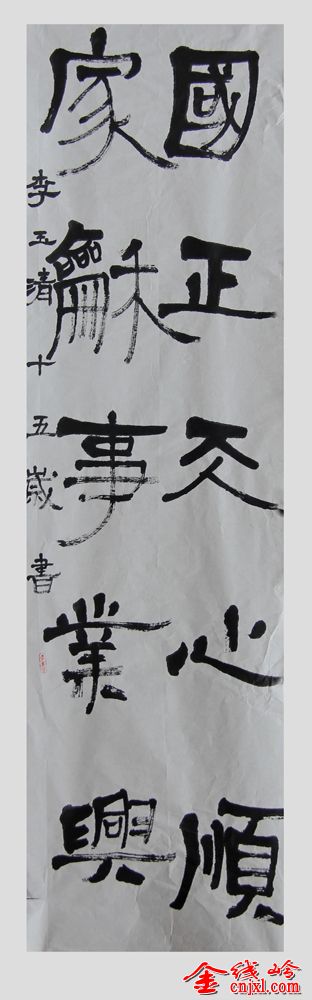 國正天心順
家龢事業興
李玉清十五歲書
金线岭
cnjxl.com